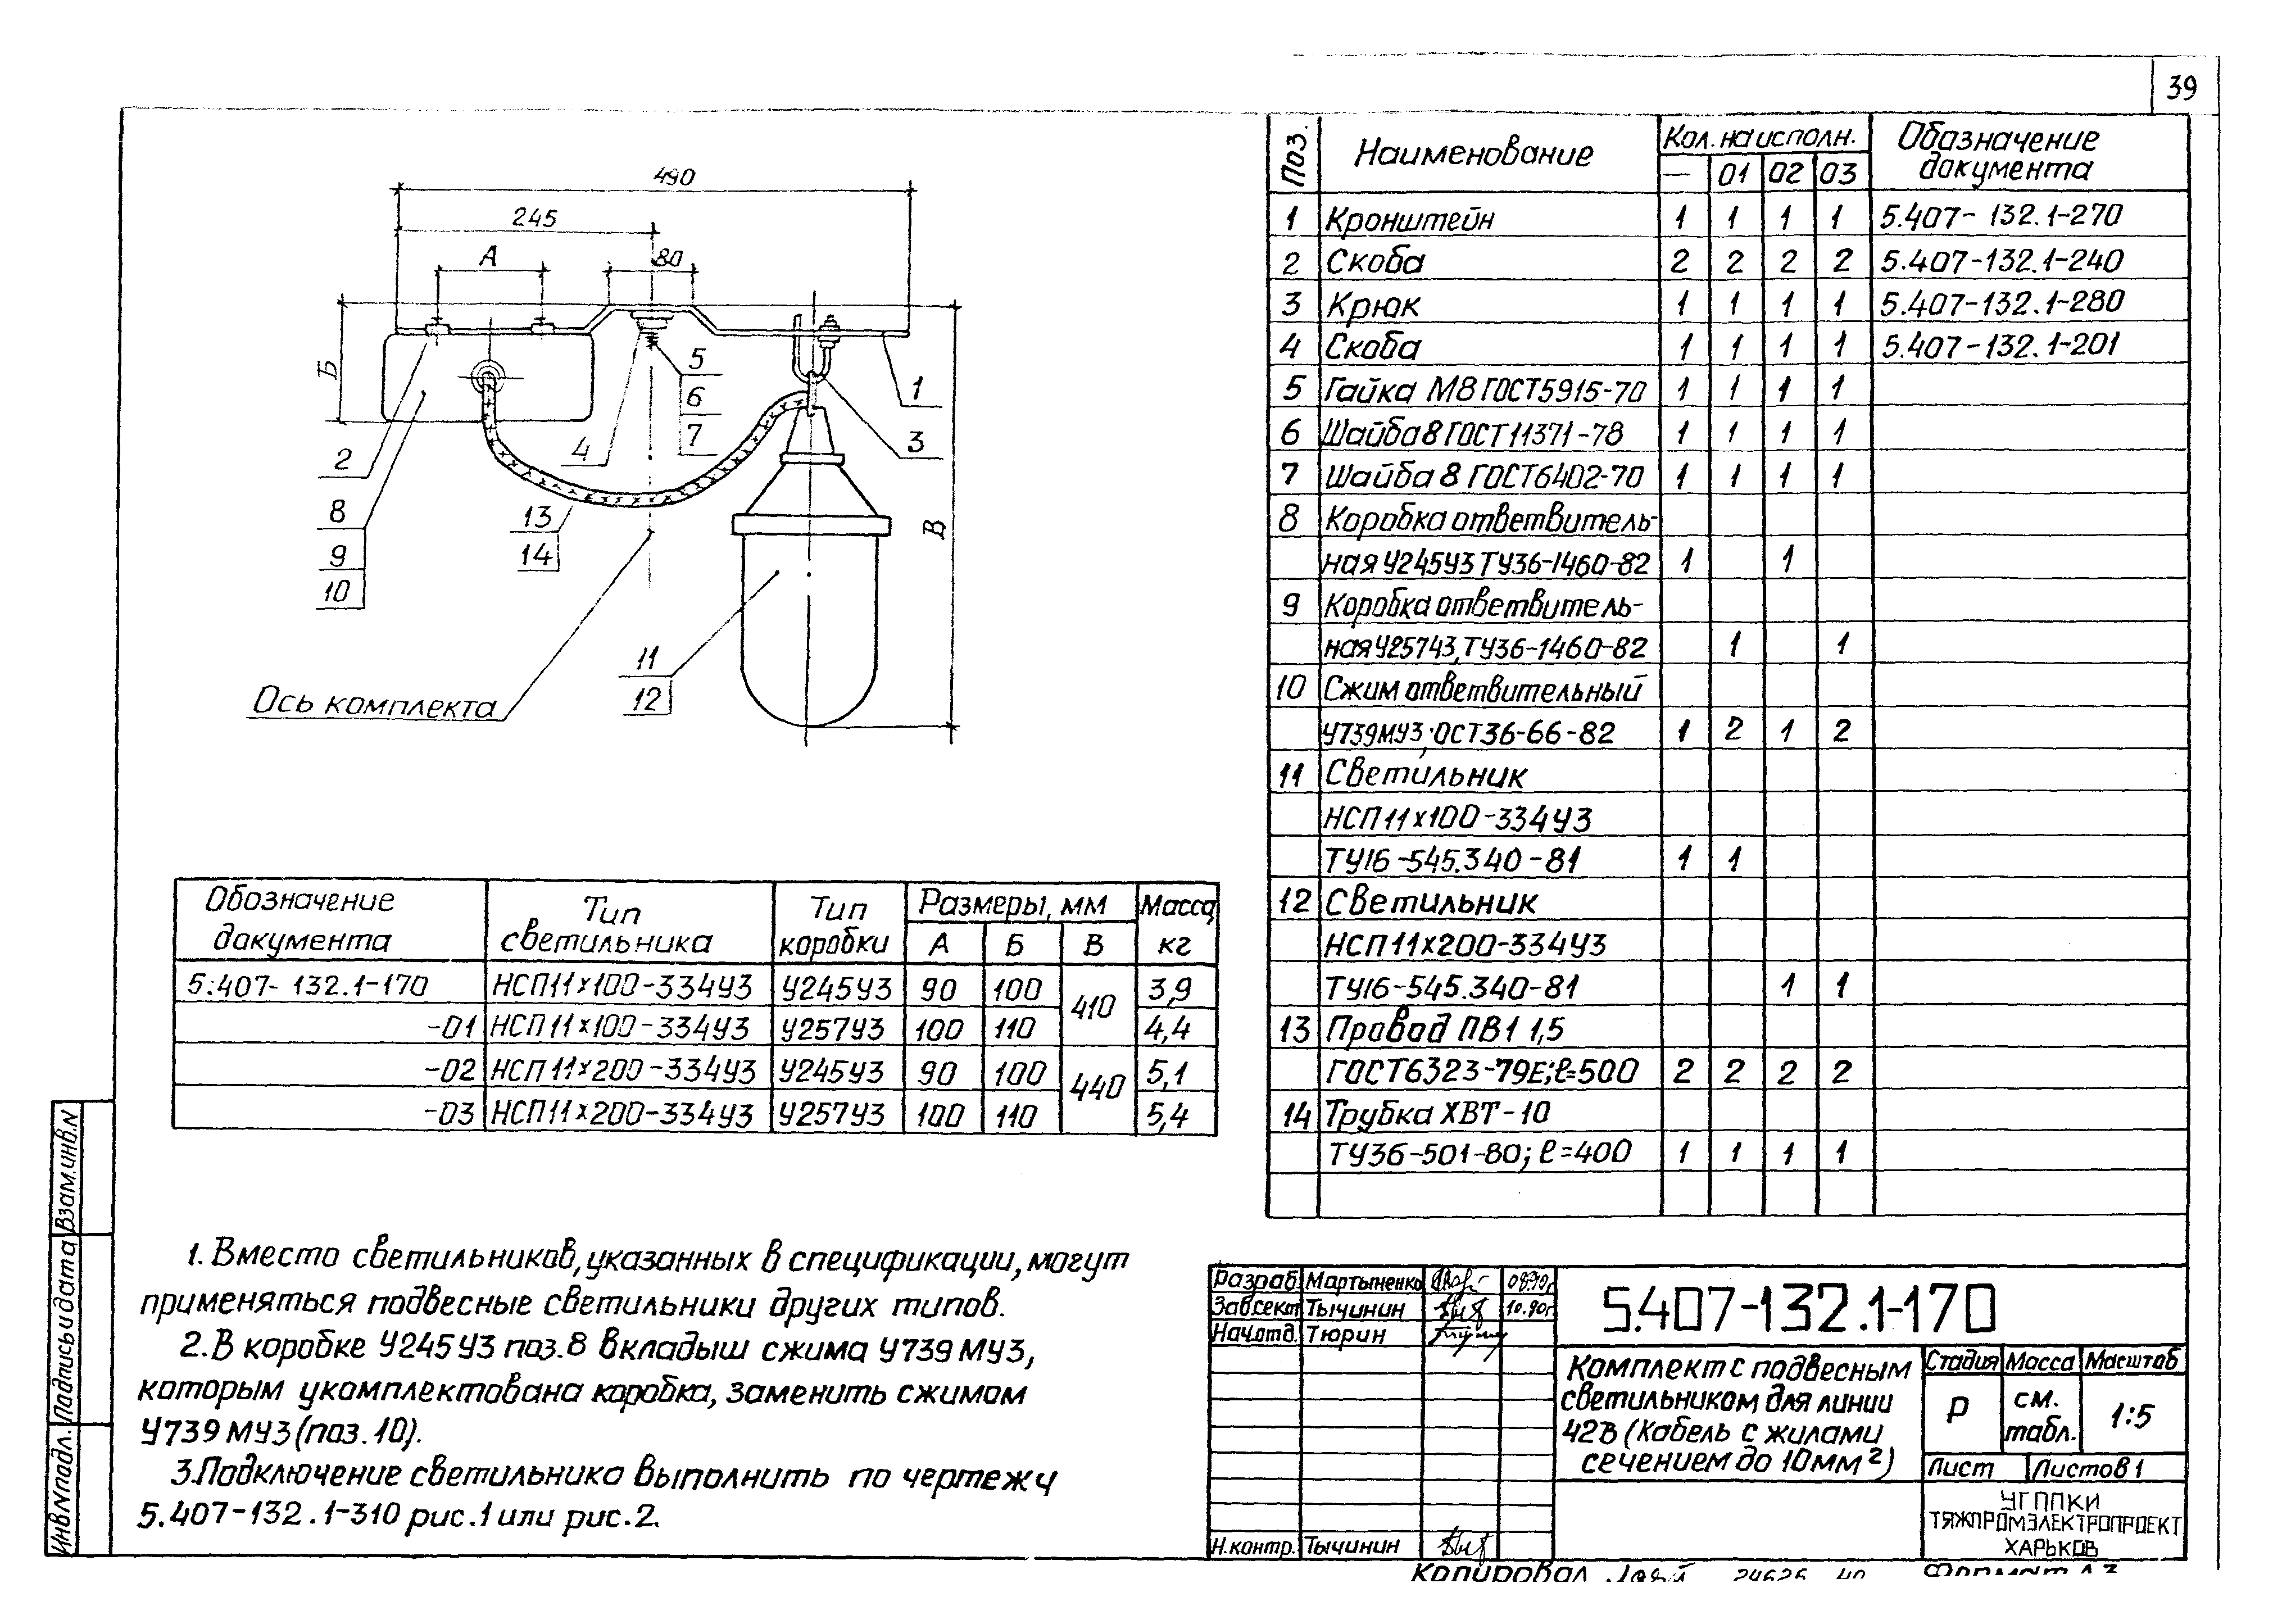 39
490
245
А
80
Б
В
5
6
7
1
3
4
2
8
9
10
13
14
11
12
Ось комплекта
Поз. Наименование Кол. на исполн. Обозначение документа
— 01 02 03
1 Кронштейн 1 1 1 1 5.407-132.1-270
2 Скоба 2 2 2 2 5.407-132.1-240
3 Крюк 1 1 1 1 5.407-132.1-280
4 Скоба 1 1 1 1 5.407-132.1-201
5 Гайка М8 ГОСТ5915-70 1 1 1 1
6 Шайба 8 ГОСТ11371-78 1 1 1 1
7 Шайба 8 ГОСТ6402-70 1 1 1 1
8 Коробка ответвитель-
ная У245У3 ТУ36-1460-82 1 1
9 Коробка ответвитель-
ная У257У3, ТУ36-1460-82 1 1
10 Сжим ответвительный
У739МУ3; ОСТ36-66-82 1 2 1 2
11 Светильник
НСП11х100-334У3
ТУ16-545.340-81 1 1
12 Светильник
НСП11х200-334У3
ТУ16-545.340-81 1 1
13 Провод ПВ1 1,5
ГОСТ6323-79Е; ℓ=500 2 2 2 2
14 Трубка ХВТ-10
ТУ36-501-80; ℓ=400 1 1 1 1
Обозначение документа Тип светильника Тип коробки Размеры, мм Масса, кг
А Б В
5.407-132.1-170 НСП11х100-334У3 У245У3 90 100 410 3,9
-01 НСП11х100-334У3 У257У3 100 110 4,4
-02 НСП11х200-334У3 У245У3 90 100 440 5,1
-03 НСП11х200-334У3 У257У3 100 110 5,4
1. Вместо светильников, указанных в спецификации, могут
применяться подвесные светильники других типов.
2. В коробке У245У3 поз. 8 вкладыш сжима У739МУ3,
которым укомплектована коробка, заменить сжимом
У739МУ3 (поз. 10).
3. Подключение светильника выполнить по чертежу
5.407-132.1-310 рис.1 или рис.2.
Инв.N подл. Подпись и дата Взам.инв.N
Разраб. Мартыненко 09.90г.
Зав.сект. Тычинин 10.90г.
Нач.отд. Тюрин
Н.контр. Тычинин
5.407-132.1-170
Комплект с подвесным
светильником для линии
42В (Кабель с жилами
сечением до 10мм²)
Стадия Масса Масштаб
Р см. табл. 1:5
Лист Листов 1
УГППКИ
ТЯЖПРОМЭЛЕКТРОПРОЕКТ
ХАРЬКОВ
Копировал 24626 40 Формат А3